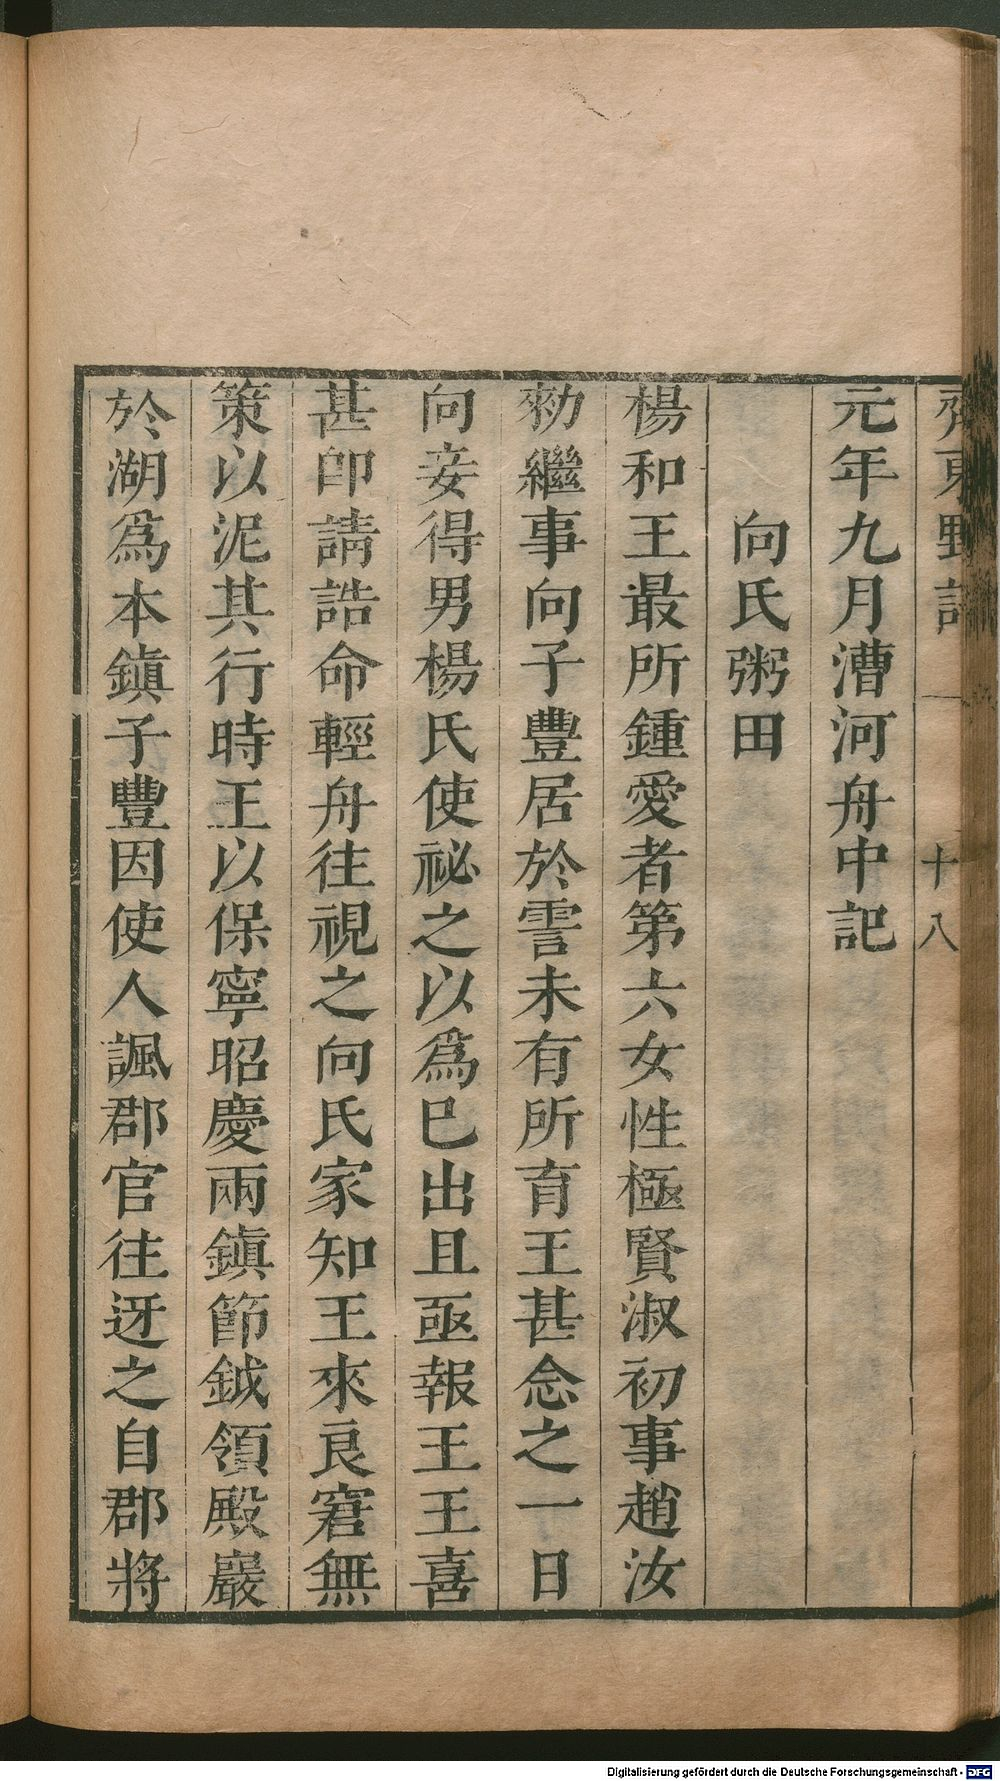 齊東野語 十八
元年九月漕河舟中記
向氏粥田
楊和王最所鍾愛者第六女性極賢淑初事趙汝
勑繼事向子豐居於霅未有所育王甚念之一日
向妾得男楊氏使祕之以爲已出且亟報王王喜
甚卽請誥命輕舟往視之向氏家知王來良窘無
策以泥其行時王以保寧昭慶兩鎮節鉞領殿巖
於湖爲本鎮子豐因使人諷郡官往迓之自郡將
Digitalisierung gefördert durch die Deutsche Forschungsgemeinschaft - DFG